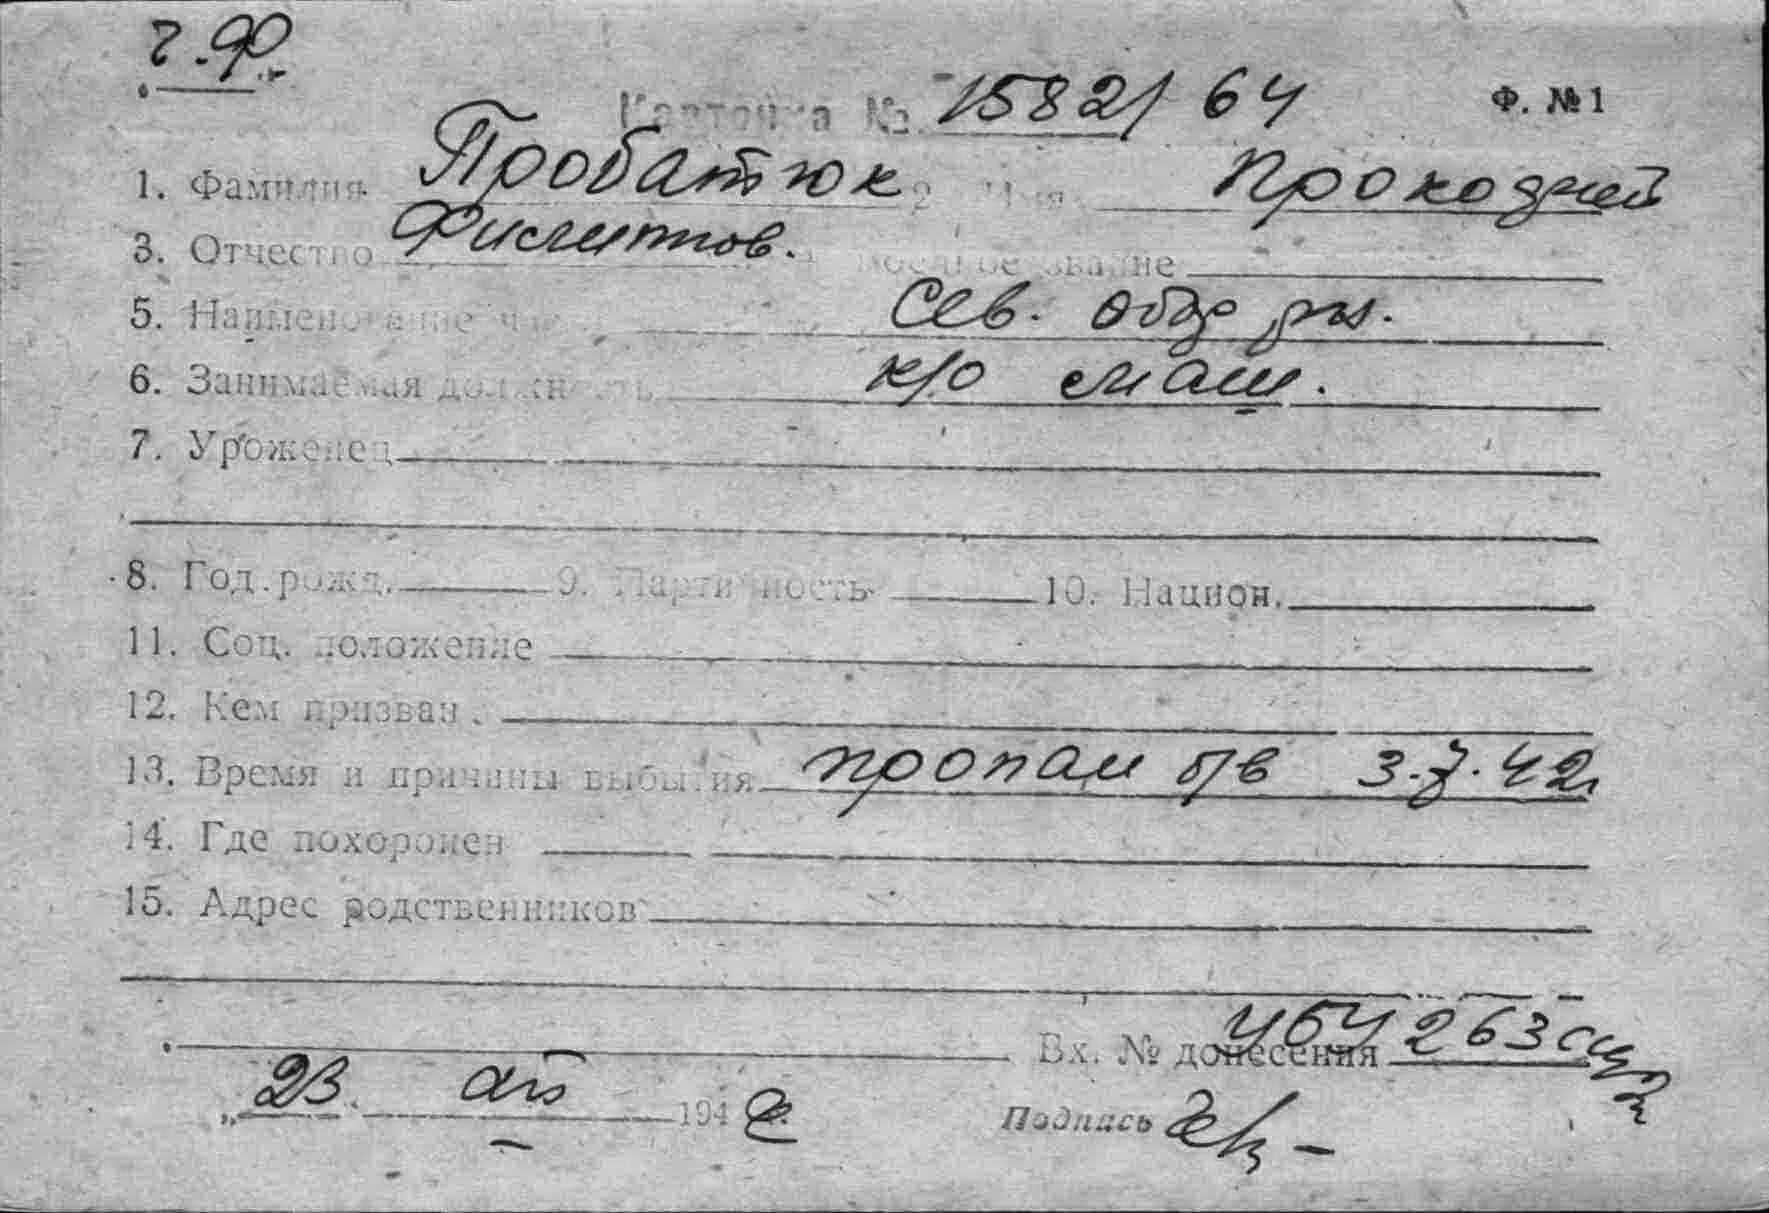 Карточка № 15821 64 Ф. №1
1. Фамилия Пробатюк 2. Имя
3. Отчество Филиппов. Военное звание
5. Наименование Сев.
6. Занимаемая должность к/о маш.
7. Уроженец
8. Год. рожд. 9. Партийность 10. Национ.
11. Соц. положение
12. Кем призван
13. Время и причины выбытия пропал б/в 3.7.42г
14. Где похоронен
15. Адрес родственников
Вх. № донесения 263
„23 194
Подпись